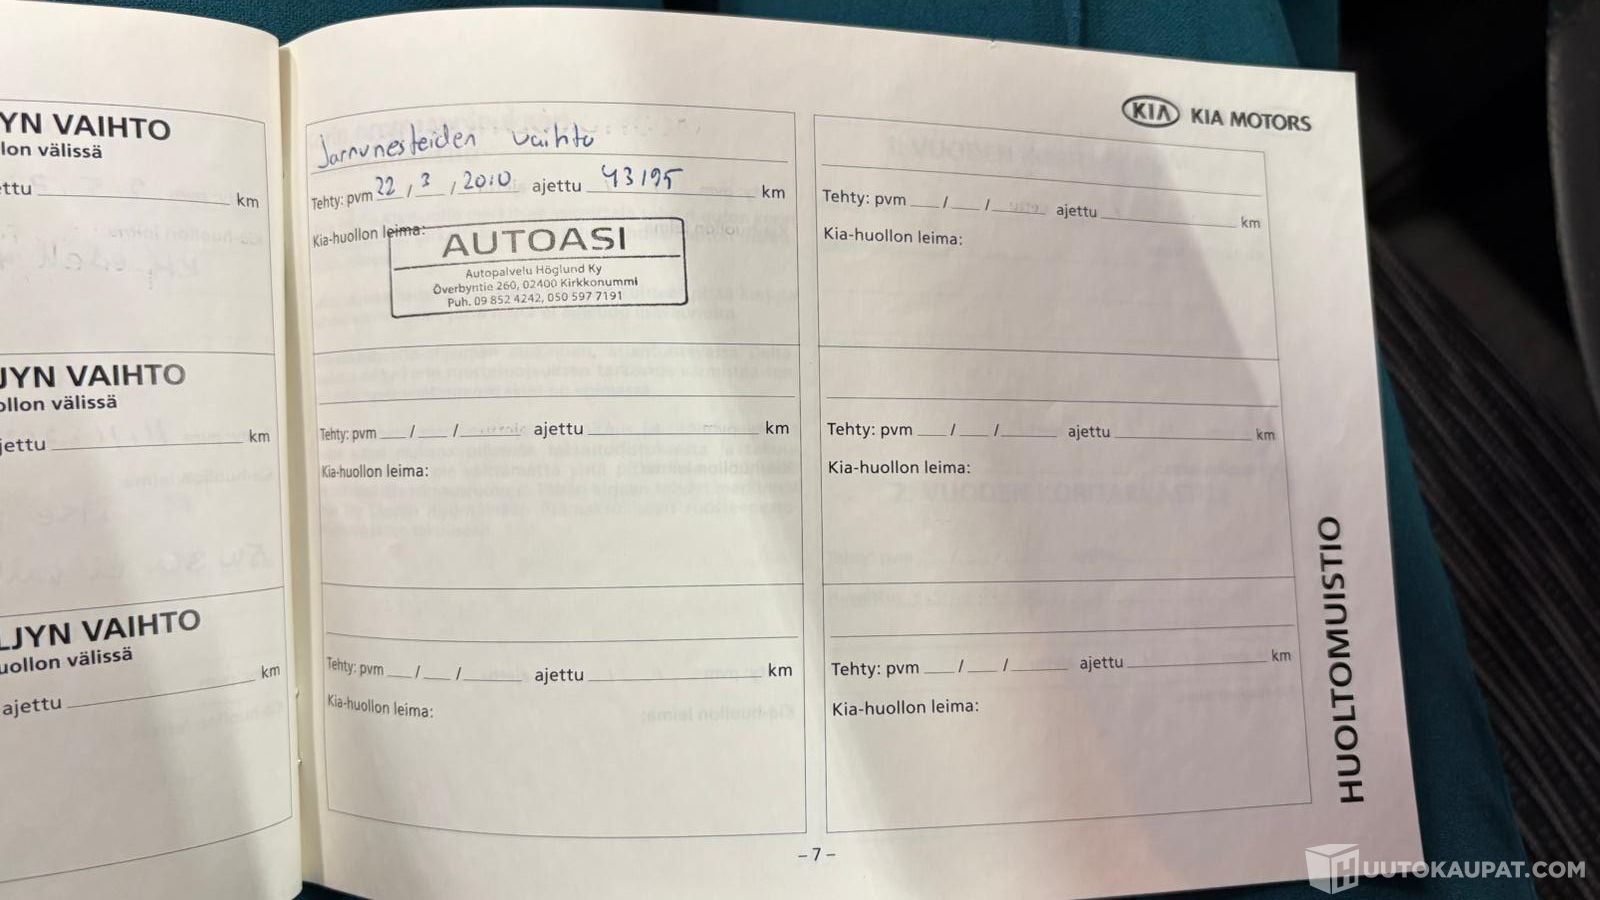 YN VAIHTO
lon välissä
ettu km
JYN VAIHTO
ollon välissä
jettu km
LJYN VAIHTO
uollon välissä
km
ajettu
Jarrunesteiden vaihto
Tehty: pvm 22 / 3 / 2010 ajettu 43195 km
Kia-huollon leima:
AUTOASI
Autopalvelu Höglund Ky
Överbyntie 260, 02400 Kirkkonummi
Puh. 09 852 4242, 050 597 7191
Tehty: pvm / / ajettu km
Kia-huollon leima:
Tehty: pvm / / ajettu km
Kia-huollon leima:
KIA KIA MOTORS
Tehty: pvm / / ajettu km
Kia-huollon leima:
Tehty: pvm / / ajettu km
Kia-huollon leima:
Tehty: pvm / / ajettu km
Kia-huollon leima:
HUOLTOMUISTIO
– 7 –
HUUTOKAUPAT.COM